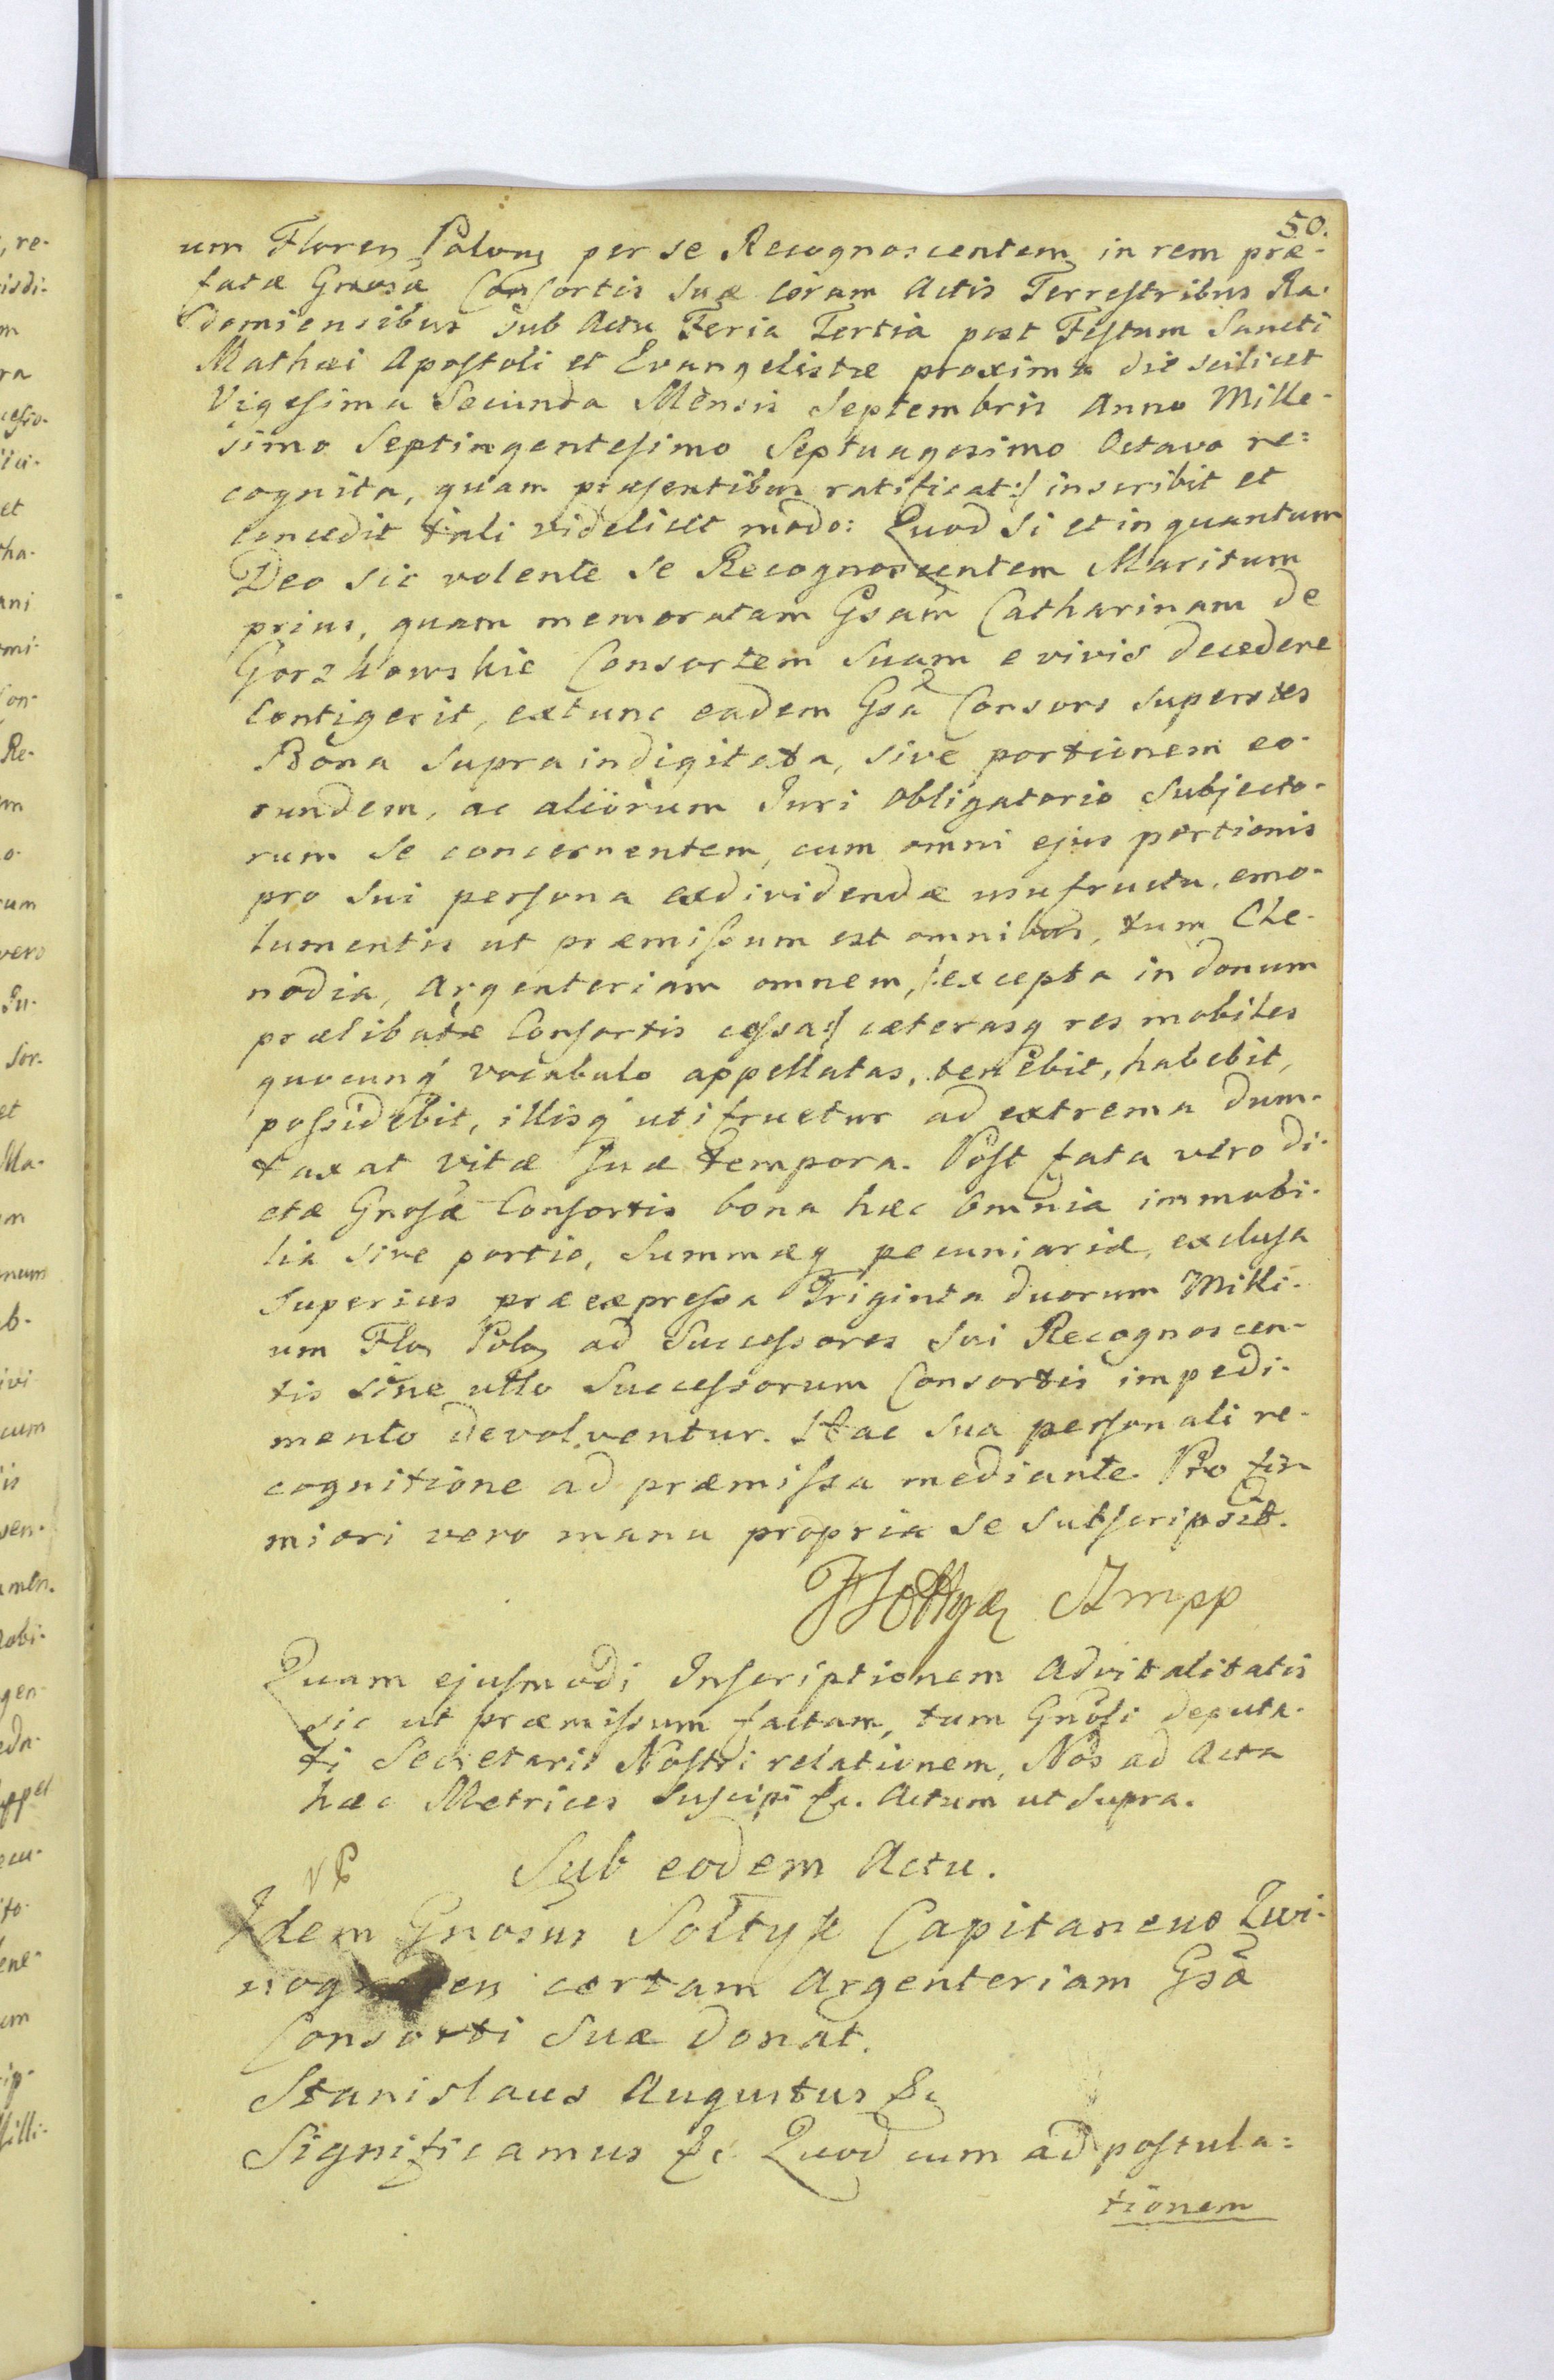 50.
um Floren Polon per se Recognoscentem in rem præ-
fatæ Gnosæ Consortis Suæ coram Actis Terrestribus Ra-
domiensibus sub Actu Feria Tertia post Festum Sancti
Mathæi Apostoli et Evangelistæ proxima die scilicet
Vigesima Secunda Mensis Septembris Anno Mille-
simo Septingentesimo Septuagesimo Octavo re=
cognita, quam præsentibus ratificat:/ inscribit et
concedit tali videlicet modo: Quod si et in quantum
Deo sic volente se Recognoscentem Maritum
prius, quam memoratam Gsam Catharinam de
Gorzkowskie Consortem Suam e vivis decedere
Contigerit, extunc eadem Gsa Consors superstes
Bona supra indigitata, sive portionem eo-
rundem, ac aliorum Juri obligatorio subjecto-
rum se concernentem, cum omni ejus portionis
pro sui persona exdividendæ usufructu, emo-
lumentis ut præmissum est omnibus, tum Cle-
nodia, Argenteriam omnem, /:excepta in donum
prælibatæ Consortis cessa:/ cæterasq res mobiles
quocunq vocabulo appellatas, tenebit, habebit,
possidebit, illisq utifruetur ad extrema dum-
taxat vitæ suæ tempora. Post fata vero di-
ctæ Gnosæ Consortis bona hæc omnia immobi-
lia sive portio, Summæq pecuniariæ, exclusa
superius præexpressa Triginta duorum Milli-
um Flo Polo ad Successores sui Recognoscen-
tis sine ullo Successorum Consortis impedi-
mento devolventur. Hac sua personali re-
cognitione ad præmissa mediante. Pro fir-
miori vero manu propria se subscripsit.
Sołtyk SZmpp
Quam ejusmodi Inscriptionem Advitalitatis
sic ut præmissum factam, tum Gnosi deputa-
ti Secretarii Nostri relationem, Nos ad Acta
hæc Metrices suscipi &c. Actum ut supra.
Sub eodem Actu.
Idem Gnosus Sołtyk Capitaneus Zwi-
nog en certam Argenteriam Gsæ
Consorti Suæ donat.
Stanislaus Augustus &c
Significamus &c. Quod cum ad postula=
tionem